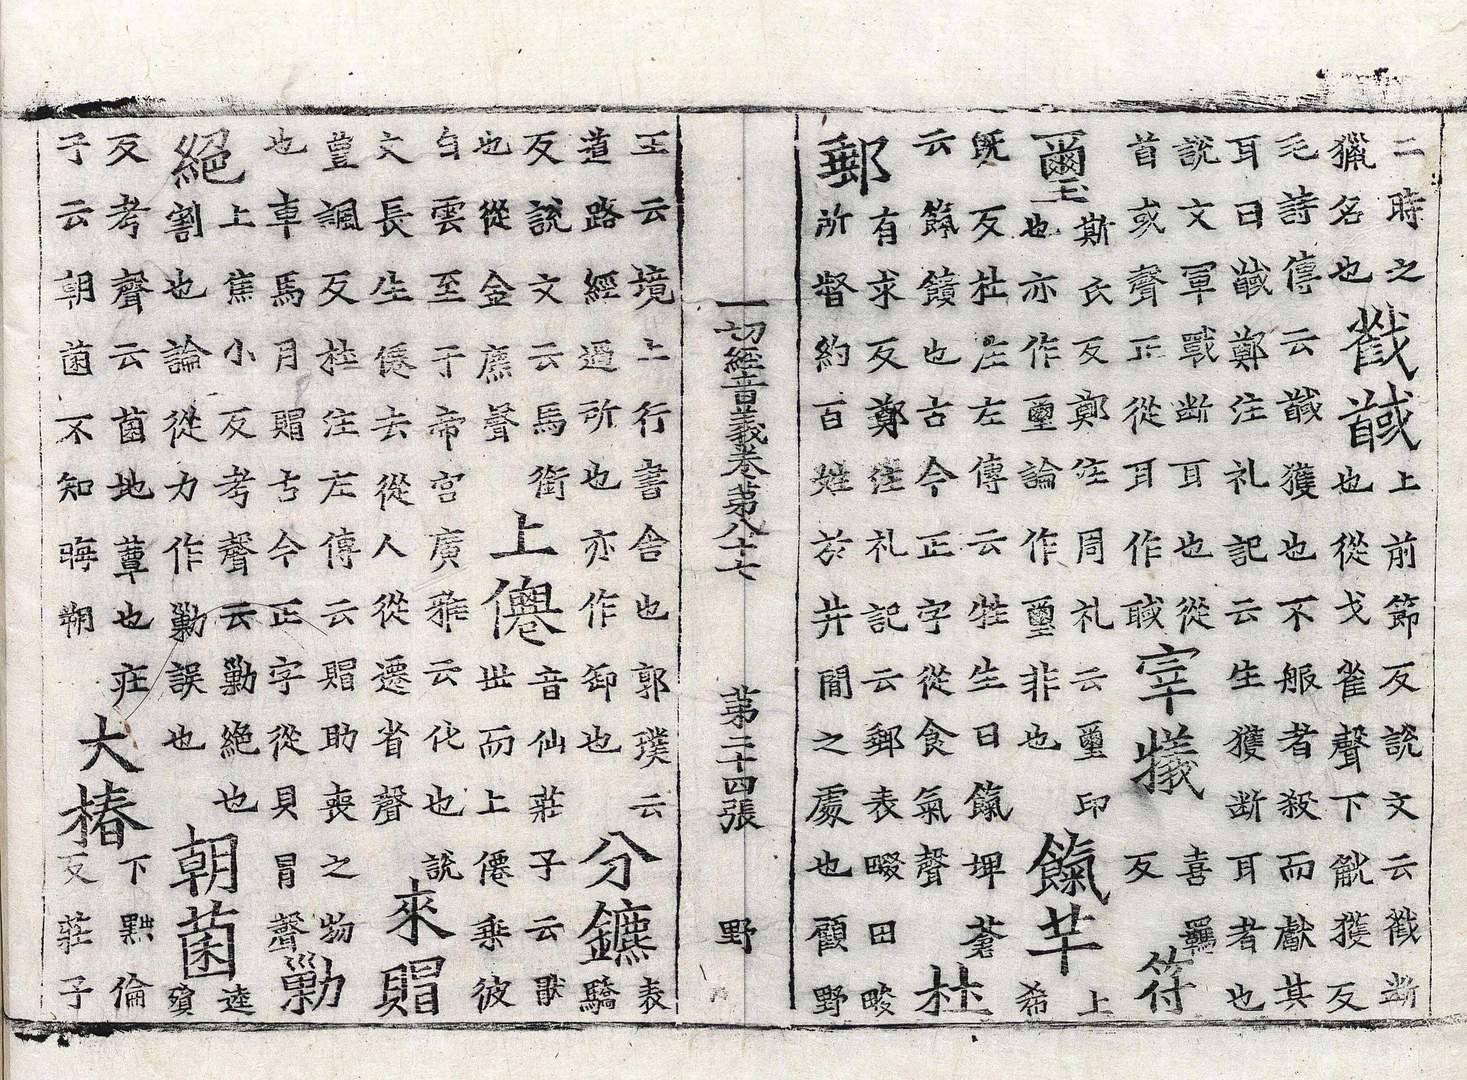 二時之
獵名也
戳馘
上前節反說文云戳斷
也從戈雀聲下觥獲反
毛詩傳云馘獲也不服者殺而獻其
耳曰馘鄭注礼記云生獲斷耳者也
說文軍戰断耳也從
首或聲正從耳作聝
宰犧
喜羈
反
符
璽
斯氏反鄭注周礼云璽印
也亦作壐論作壐非也
餼芉
上
希
旣反杜注左傳云牲生曰餼埤蒼
云餼饋也古今正字從食氣聲
杜
郵
有求反鄭注礼記云郵表畷田畯
所督約百姓於井間之處也顧野
一切經音義卷苐八十七 苐二十四張 野
王云境上行書舍也郭璞云
道路經過所也亦作卸也
分鑣
表
驕
反說文云馬銜
也從金麃聲
上僊
音仙莊子云猒
世而上僊乘彼
白雲至于帝宮廣雅云化也說
文長生僊去從人從䙴省聲
來賵
豊諷反杜注左傳云賵助喪之物
也車馬月賵古今正字從貝冒聲
勦
絕
上焦小反考聲云勦絕也
割也論從力作勦誤也
朝菌
逵
殞
反考聲云菌地蕈也莊
子云朝菌不知晦朔
大椿
下黜倫
反莊子